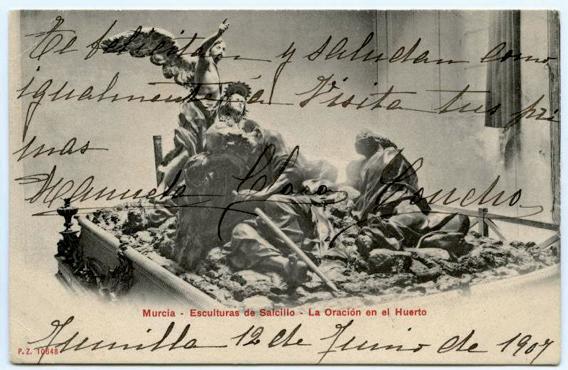 Te felicitan y saludan como
igualmente á Tia Visita tus pri
mas
Manuela Clara Concha
Murcia - Esculturas de Salcillo - La Oración en el Huerto
P. Z. 10648
Jumilla 12 de Junio de 1907